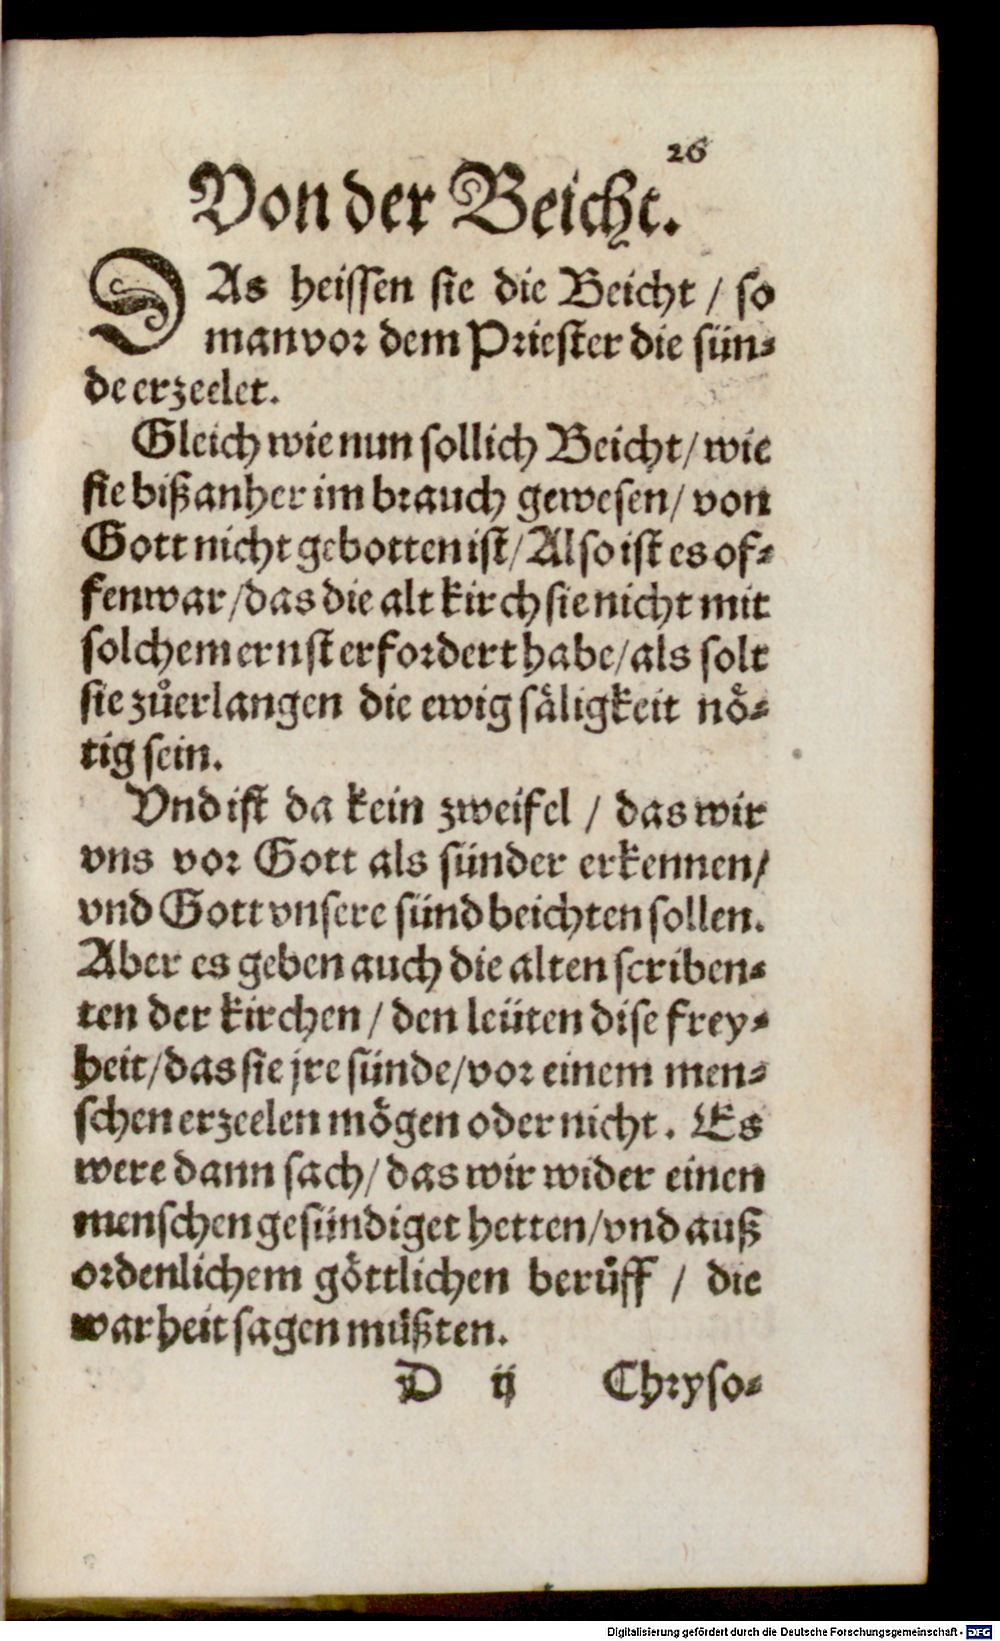 26
Von der Beicht.
DAs heissen sie die Beicht / so
man vor dem Priester die sün⸗
de erzeelet.
Gleich wie nun sollich Beicht / wie
sie bißanher im brauch gewesen / von
Gott nicht gebotten ist / Also ist es of⸗
fenwar / das die alt kirch sie nicht mit
solchem ernst erfordert habe / als solt
sie zůerlangen die ewig säligkeit nö⸗
tig sein.
Vnd ist da kein zweifel / das wir
vns vor Gott als sünder erkennen /
vnd Gott vnsere sünd beichten sollen.
Aber es geben auch die alten scriben⸗
ten der kirchen / den leüten dise frey⸗
heit / das sie jre sünde / vor einem men⸗
schen erzeelen mögen oder nicht. Es
were dann sach / das wir wider einen
menschen gesündiget hetten / vnd auß
ordenlichem göttlichen berůff / die
warheit sagen müßten.
D ij Chryso⸗
Digitalisierung gefördert durch die Deutsche Forschungsgemeinschaft - DFG